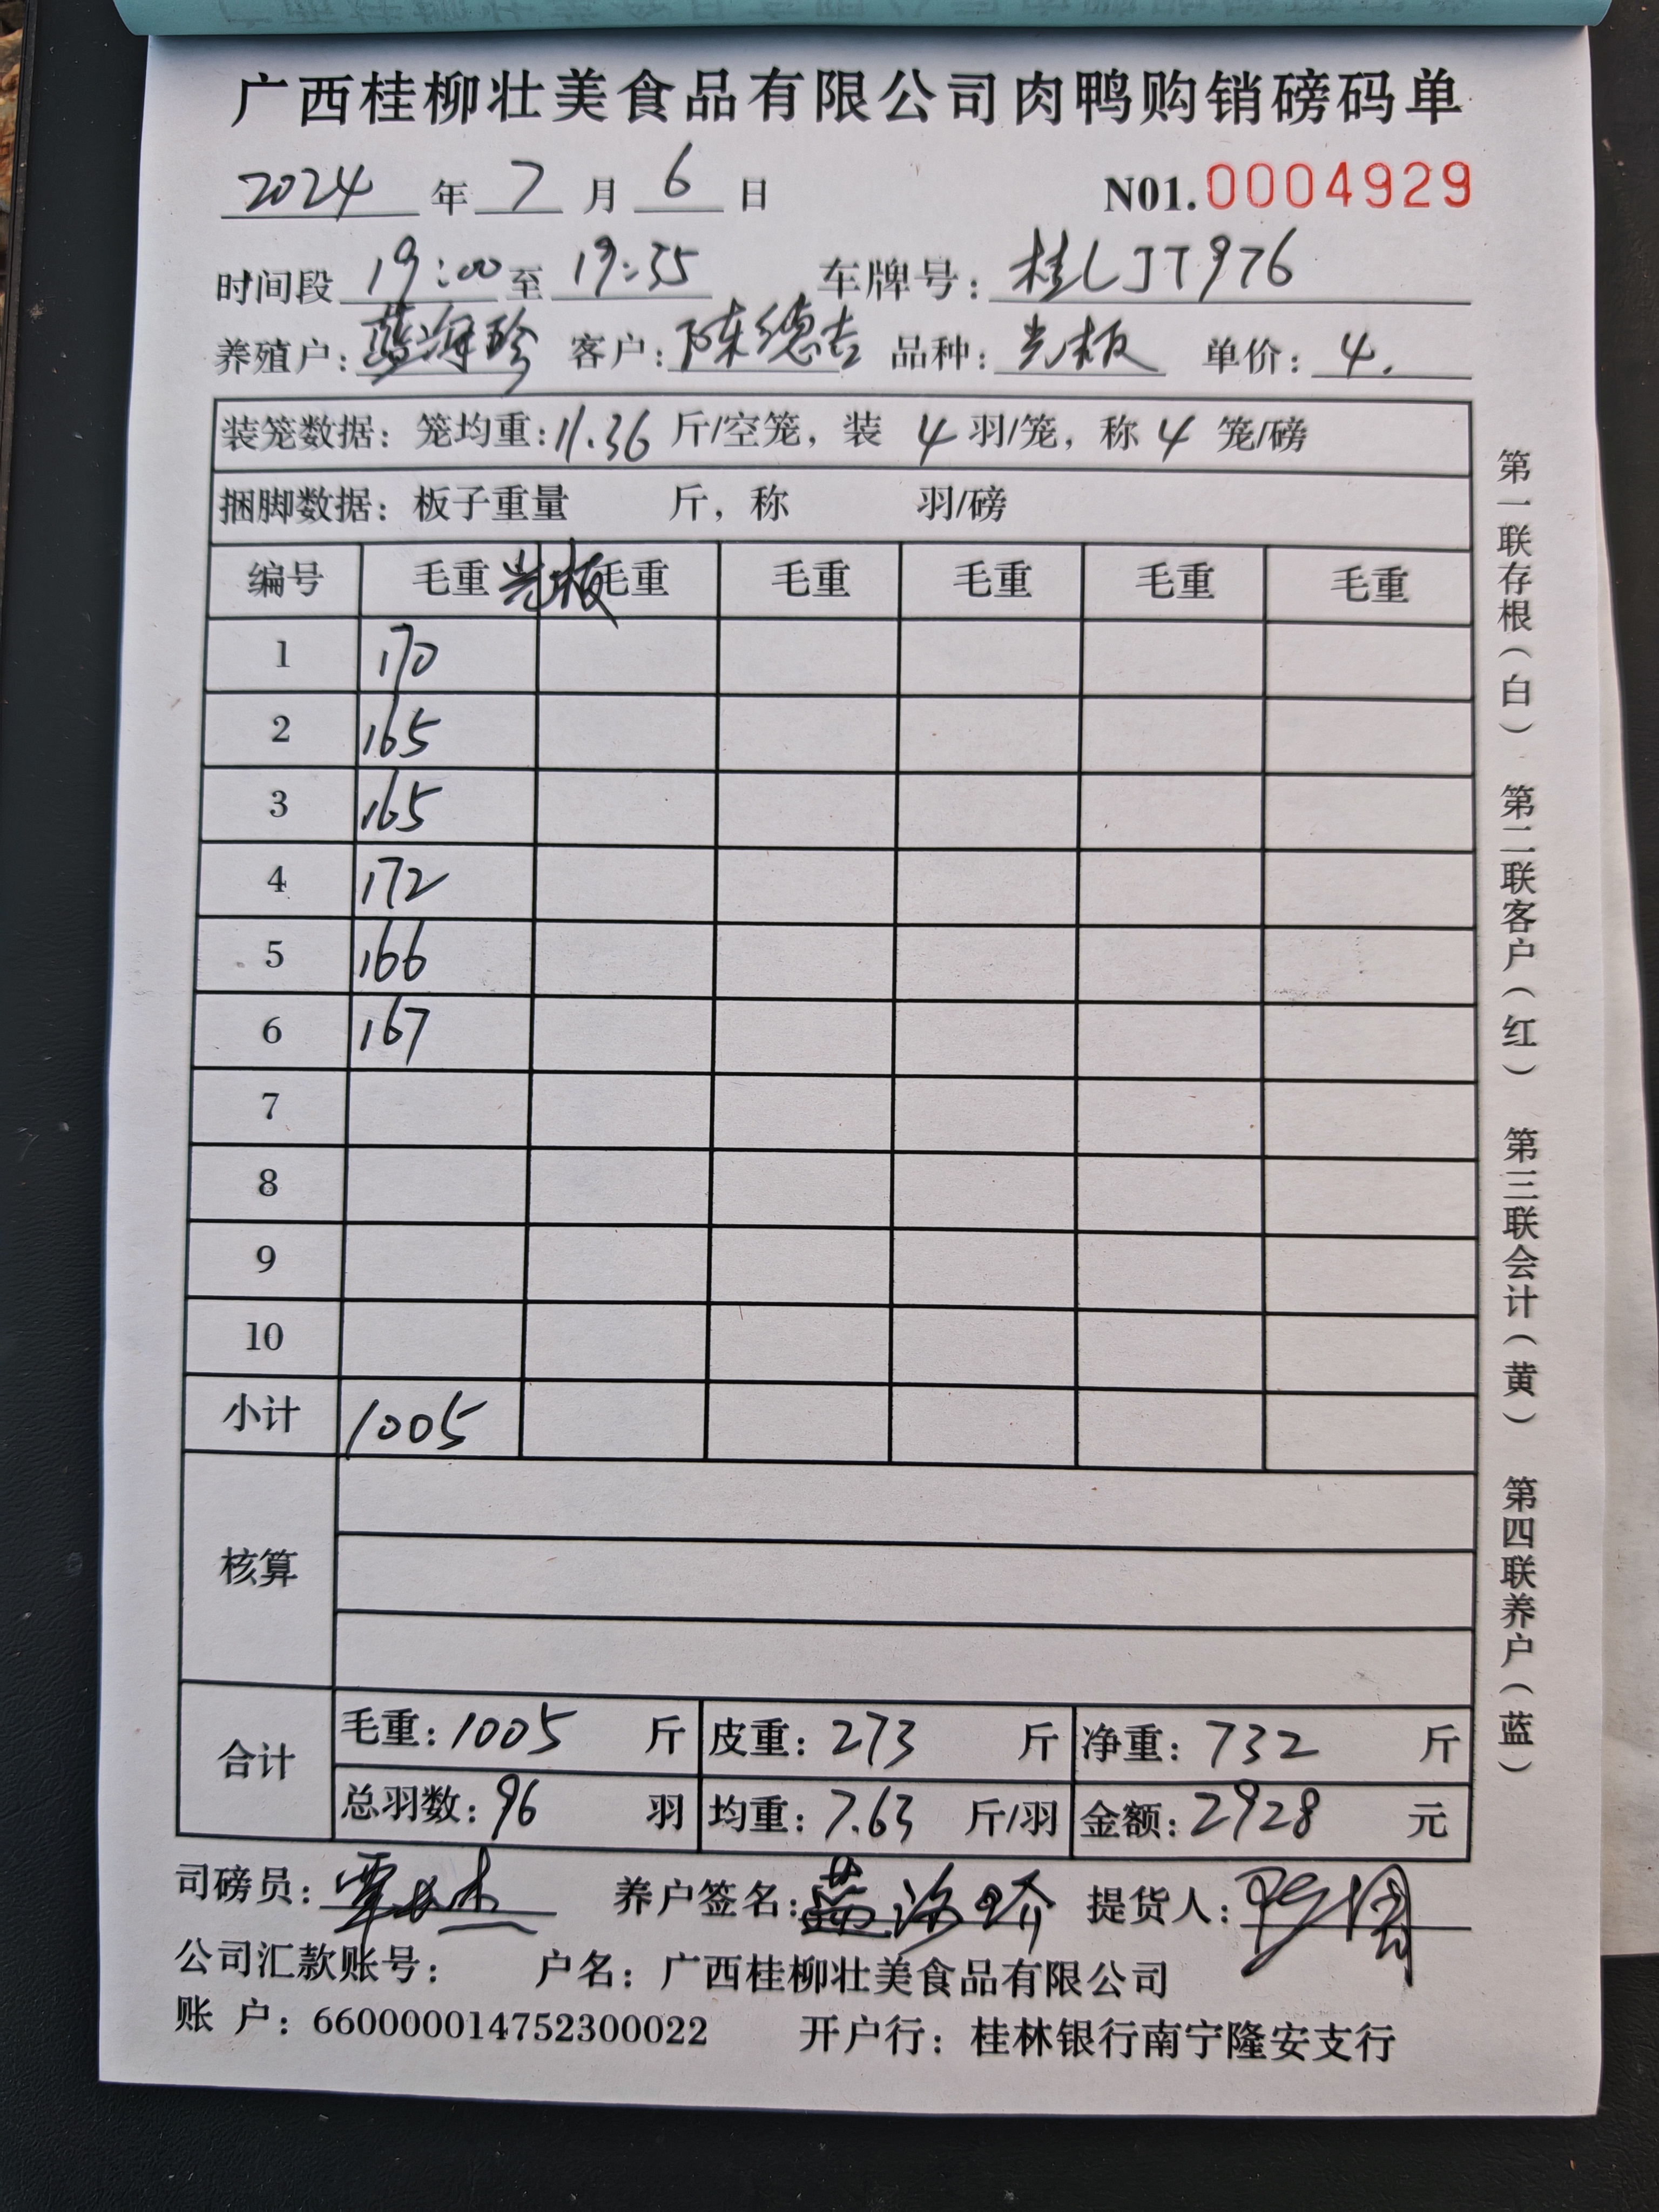 广西桂柳壮美食品有限公司肉鸭购销磅码单
2024 年 7 月 6 日 N01.0004929
时间段 19:00 至 19:35 车牌号: 桂LJT976
养殖户: 蓝海珍 客户: 陈德吉 品种: 光板 单价: 4.
装笼数据: 笼均重: 11.36 斤/空笼, 装 4 羽/笼, 称 4 笼/磅
捆脚数据: 板子重量 斤, 称 羽/磅
编号 毛重 光板 毛重 毛重 毛重 毛重 毛重
1 170
2 165
3 165
4 172
5 166
6 167
7
8
9
10
小计 1005
核算
合计 毛重: 1005 斤 皮重: 273 斤 净重: 732 斤
总羽数: 96 羽 均重: 7.63 斤/羽 金额: 2928 元
司磅员: 养户签名: 蓝海珍 提货人:
公司汇款账号: 户名: 广西桂柳壮美食品有限公司
账 户: 660000014752300022 开户行: 桂林银行南宁隆安支行
第一联存根(白) 第二联客户(红) 第三联会计(黄) 第四联养户(蓝)